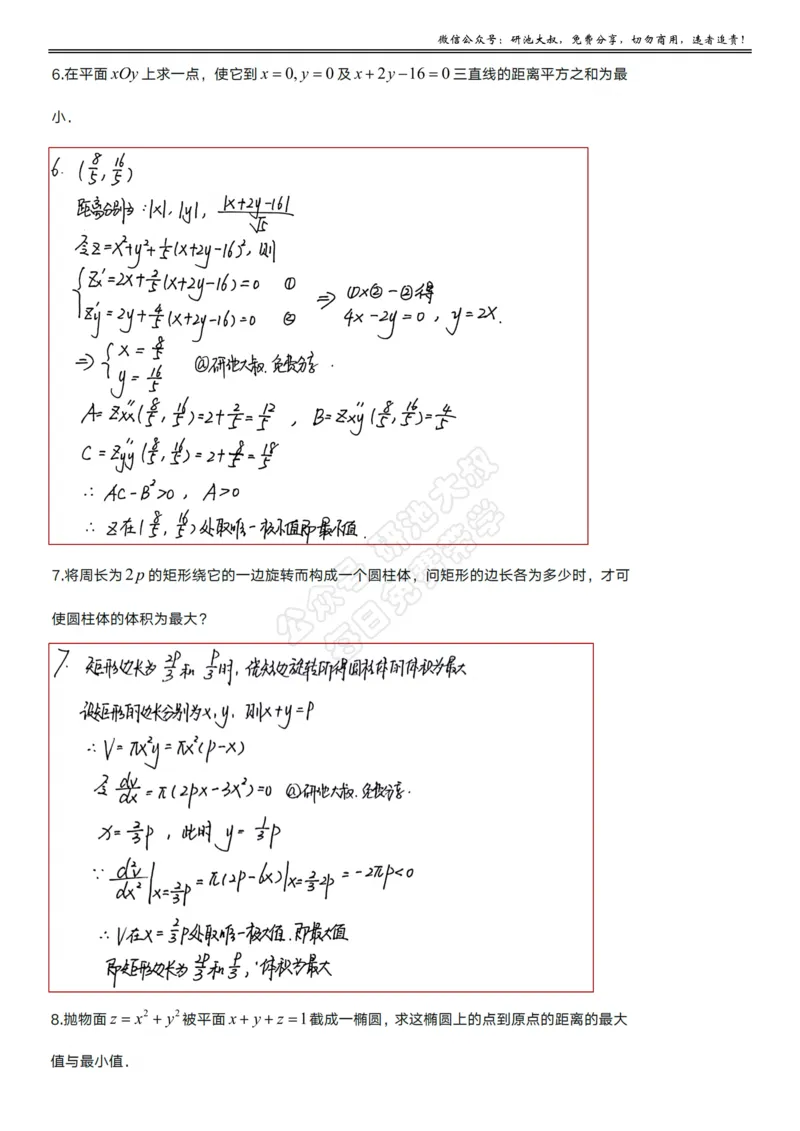 微信公众号：研池大叔，免费分享，切勿商用，违者追责！
6.在平面 xOy 上求一点，使它到 x = 0, y = 0 及 x + 2y − 16 = 0 三直线的距离平方之和为最
小．
6. (8/5, 16/5)
距离分别为：|x|, |y|, |x+2y-16|/√5
令z=x²+y²+1/5(x+2y-16)², 则
{ Zx'=2x+2/5(x+2y-16)=0 ①
Zy'=2y+4/5(x+2y-16)=0 ②
⇒ ①×②-②得
4x-2y=0, y=2x.
⇒ { x=8/5
y=16/5
@研池大叔.免费分享.
A=Zxx''(8/5, 16/5)=2+2/5=12/5, B=Zxy''(8/5, 16/5)=4/5
C=Zyy''(8/5, 16/5)=2+8/5=18/5
∴ AC-B²>0, A>0
∴ Z在(8/5, 16/5)处取唯一极小值即最小值.
公众号 研池大叔
每日免费带学
7.将周长为 2p 的矩形绕它的一边旋转而构成一个圆柱体，问矩形的边长各为多少时，才可
使圆柱体的体积为最大？
7. 矩形边长为 2p/3 和 p/3 时, 绕短边旋转所得圆柱体的体积为最大
设矩形的边长分别为x, y, 则x+y=p
∴ V=πx²y=πx²(p-x)
令 dv/dx=π(2px-3x²)=0 @研池大叔.免费分享.
x=2/3p, 此时 y=1/3p
∵ d²v/dx²|x=2/3p =π(2p-6x)|x=2/3p =-2πp<0
∴ V在x=2/3p处取唯一极大值.即最大值
即矩形边长为 2p/3 和 p/3, 体积为最大
8.抛物面 z = x² + y² 被平面 x + y + z = 1 截成一椭圆，求这椭圆上的点到原点的距离的最大
值与最小值．